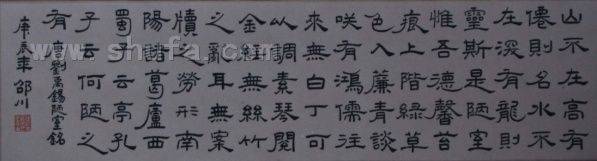 山不在高有
僊則名水不
在深有龍則
靈斯是陋室
惟吾德馨苔
痕上階綠草
色入簾青談
咲有鴻儒往
來無白丁可
以調素琴閱
金經無絲竹
之亂耳無案
牘之勞形南
陽諸葛廬西
蜀子云亭孔
子云何陋之
有 唐劉禹錫陋室銘
庚辰年 邵川